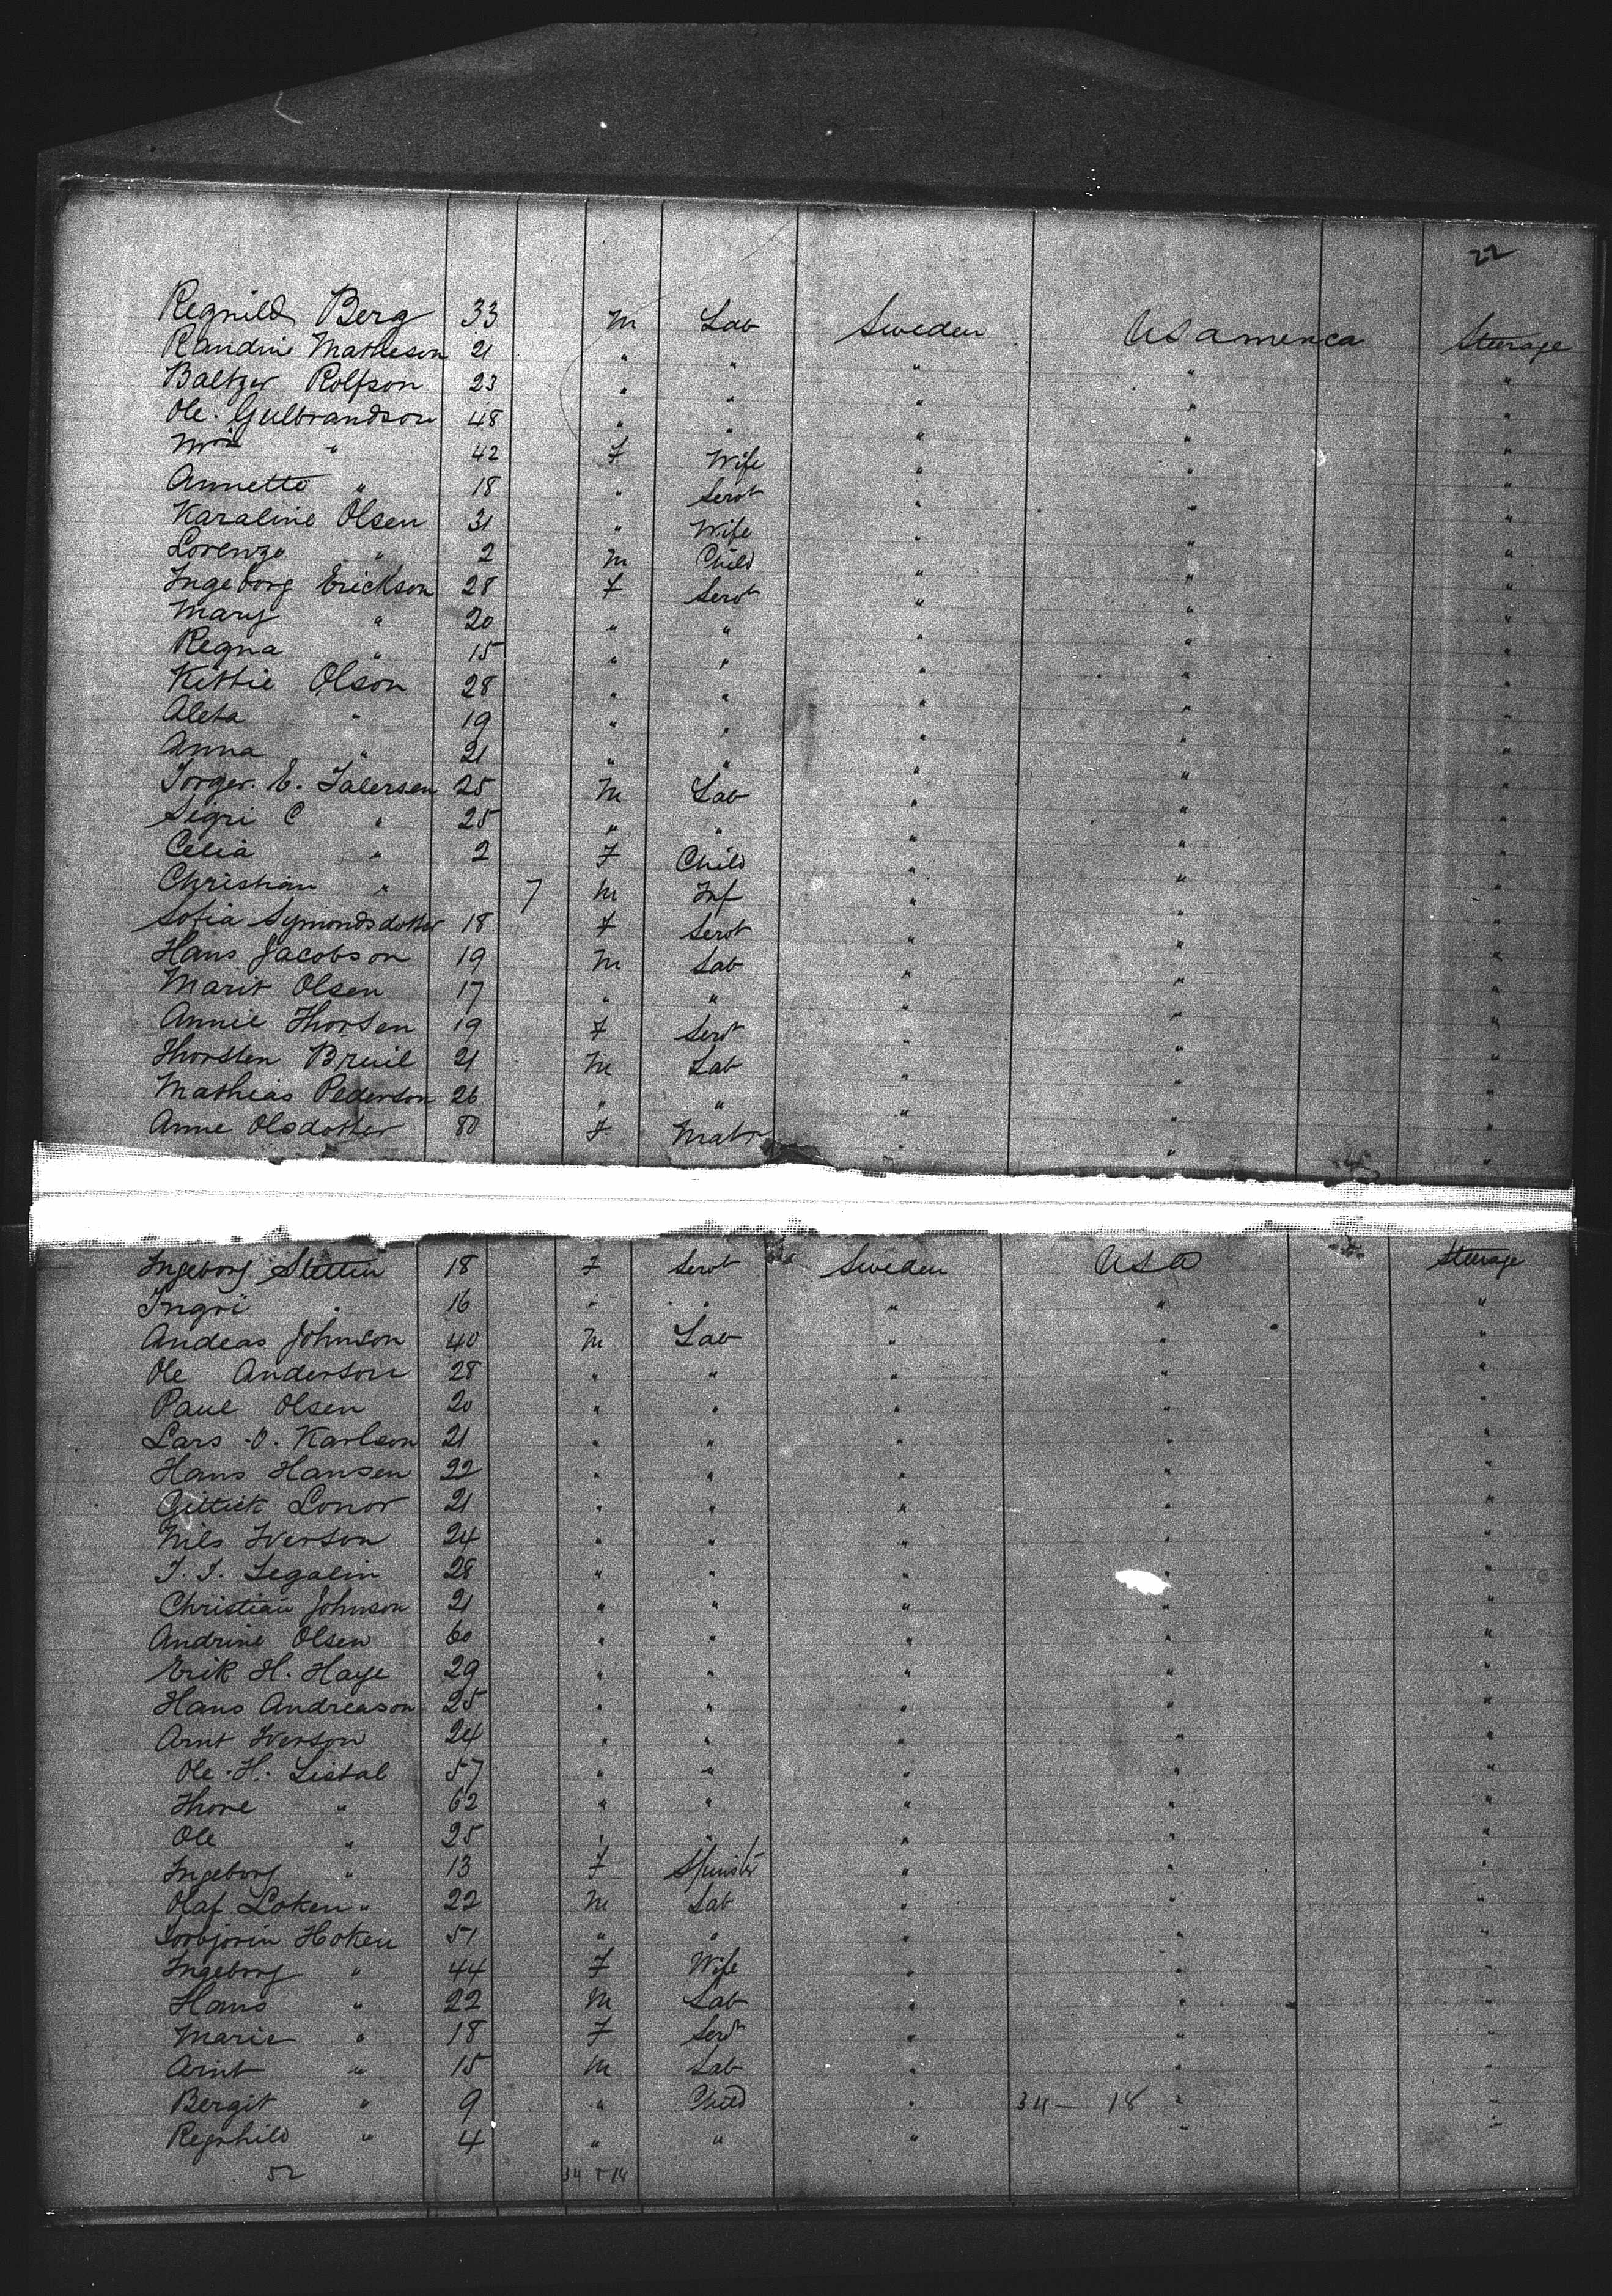 22
Regnild Berg 33 M Lab Sweden US america Steerage
Randine Matheson 21 " " " " "
Baltzer Rolfson 23 " " " " "
Ole. Gulbrandson 48 " " " " "
Mrs " 42 F Wife " " "
Annette " 18 " Servt " " "
Karaline Olsen 31 " Wife " " "
Lorenze " 2 M Child " " "
Ingeborg Erickson 28 F Servt " " "
Mary " 20 " " " " "
Regna " 15 " " " " "
Kittie Olson 28 " " " " "
Aleta " 19 " " " " "
Anna " 21 " " " " "
Torger. E. Talersen 25 M Lab " " "
Sigri C " 25 " " " " "
Celia " 2 F Child " " "
Christian " 7 M Inf " " "
Sofia Symondsdotter 18 F Servt " " "
Hans Jacobson 19 M Lab " " "
Marit Olsen 17 " " " " "
Annie Thorsen 19 F Servt " " "
Thorsten Bruil 21 M Lab " " "
Mathias Pederson 26 " " " " "
Anne Olsdotter 80 F Matr " " "
Ingeborg Stettin 18 F Servt Sweden USA Steerage
Ingri " 16 " " " " "
Andeas Johnson 40 M Lab " " "
Ole Anderson 28 " " " " "
Paul Olsen 20 " " " " "
Lars . O. Karlson 21 " " " " "
Hans Hansen 22 " " " " "
Gittick Lonor 21 " " " " "
Nils Iverson 24 " " " " "
T. T. Segalin 28 " " " " "
Christian Johnson 21 " " " " "
Andrine Olsen 60 " " " " "
Erik H. Haye 29 " " " " "
Hans Andreason 25 " " " " "
Arnt Iverson 24 " " " " "
Ole. H. Listal 57 " " " " "
Thore " 62 " " " " "
Ole " 25 " " " " "
Ingeborg " 13 F Spinstr " " "
Olaf Loken " 22 M Lab " " "
Torbjorin Hoken 51 " " " " "
Ingeborg " 44 F Wife " " "
Hans " 22 M Lab " " "
Marie " 18 F Servt " " "
Arnt " 15 M Lab " " "
Bergit " 9 " Child " 34 - 18 " "
Regnhild " 4 " " " " "
52 34 + 18